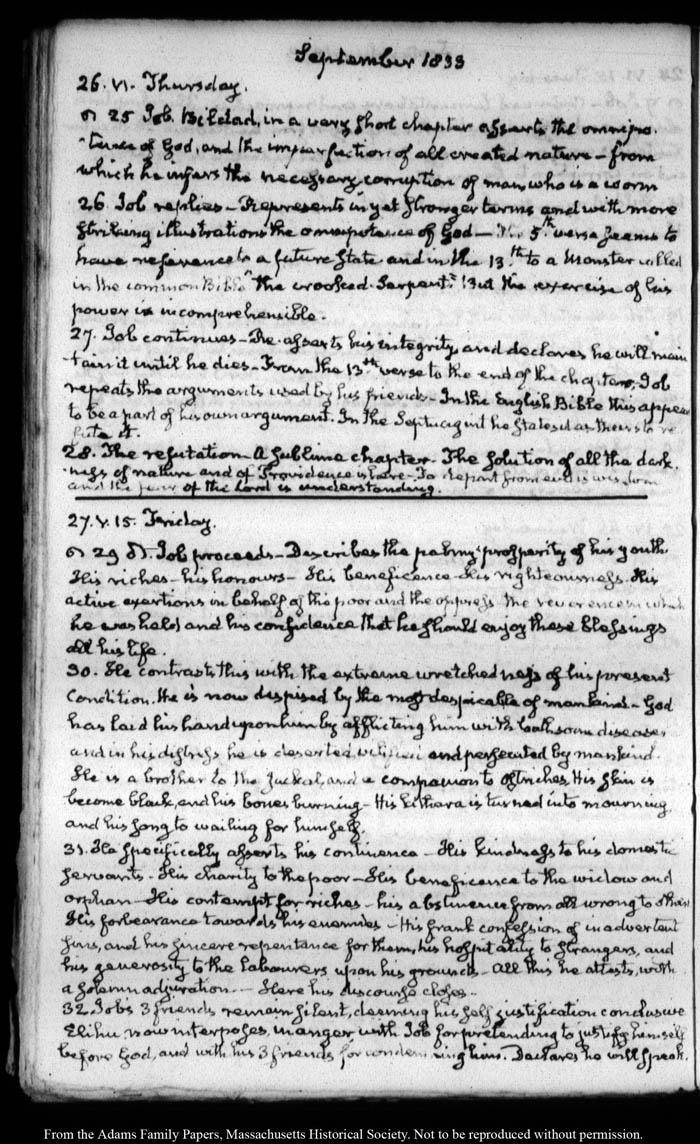 September 1833
26. VI. Thursday.
25 Job. Bildad, in a very short chapter asserts the omnipo-
-tence of God, and the imperfection of all created nature – from
which he infers the necessary corruption of man, who is a worm
26. Job replies – Represents in yet stronger terms and with more
striking illustrations the omnipotence of God – The 5th verse seems to
have reference to a future state and in the 13th to a Monster called
in the common Bible "the crooked Serpent". But the exercise of his
power is incomprehensible.
27. Job continues – Re-asserts his integrity, and declares he will main
-tain it until he dies – From the 13th verse to the end of the chapter, Job
repeats the arguments used by his friends – In the English Bible this appears
to be a part of his own argument. In the Septuagint he states it as theirs to re
fute it.
28. The refutation – A sublime chapter – The solution of all the dark-
-ness of nature and of Providence is here – To depart from evil is wisdom
and the fear of the Lord is understanding.
27. V. 15. Friday.
29 Job proceeds – Describes the palmy prosperity of his youth
His riches – his honours – His beneficence – His righteousness. His
active exertions in behalf of the poor and the oppress the reverence in which
he was held, and his confidence that he should enjoy these blessings
all his life.
30. He contrasts this with the extreme wretchedness of his present
condition. He is now despised by the most despicable of mankind – God
has laid his hand upon him by afflicting him with loathsome diseases
and in his distress he is deserted vilified and persecuted by mankind.
He is a brother to the Jackal, and a companion to ostriches. His skin is
become black, and his bones burning – His Kithara is turned into mourning,
and his song to wailing for himself.
31. He specifically asserts his continence – His kindness to his domestic
servants – His charity to the poor – His beneficence to the widow and
orphan – His contempt for riches – his abstinence from all wrong to others
His forbearance towards his enemies – His frank confession of inadvertent
sins, and his sincere repentance for them, his hospitality to strangers, and
his generosity to the labourers upon his grounds – All this he attests, with
a solemn adjuration – Here his discourse closes –
32. Job's 3 friends remain silent, deeming his self justification conclusive
Elihu now interposes, in anger with Job for pretending to justify himself
before God, and with his 3 friends for condemning him. Declares he will speak.
From the Adams Family Papers, Massachusetts Historical Society. Not to be reproduced without permission.